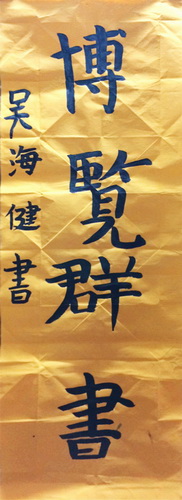 博覽群書
吴海健書